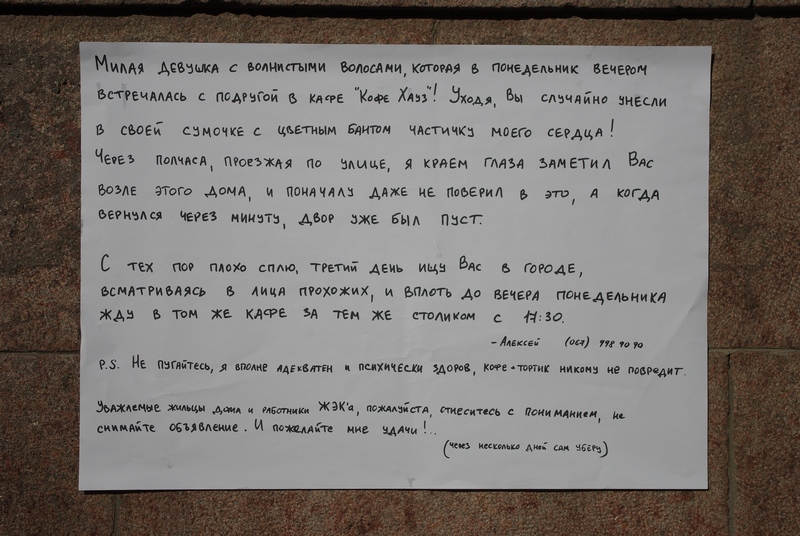 Милая девушка с волнистыми волосами, которая в понедельник вечером
встречалась с подругой в кафе "Кофе Хауз"! Уходя, Вы случайно унесли
в своей сумочке с цветным бантом частичку моего сердца!
Через полчаса, проезжая по улице, я краем глаза заметил Вас
возле этого дома, и поначалу даже не поверил в это, а когда
вернулся через минуту, двор уже был пуст.
С тех пор плохо сплю, третий день ищу Вас в городе,
всматриваясь в лица прохожих, и вплоть до вечера понедельника
жду в том же кафе за тем же столиком с 17:30.
- Алексей (067) 998 90 90
P.S. Не пугайтесь, я вполне адекватен и психически здоров, кофе + тортик никому не повредит.
Уважаемые жильцы дома и работники ЖЭК'а, пожалуйста, отнеситесь с пониманием, не
снимайте объявление. И пожелайте мне удачи!..
(через несколько дней сам уберу)